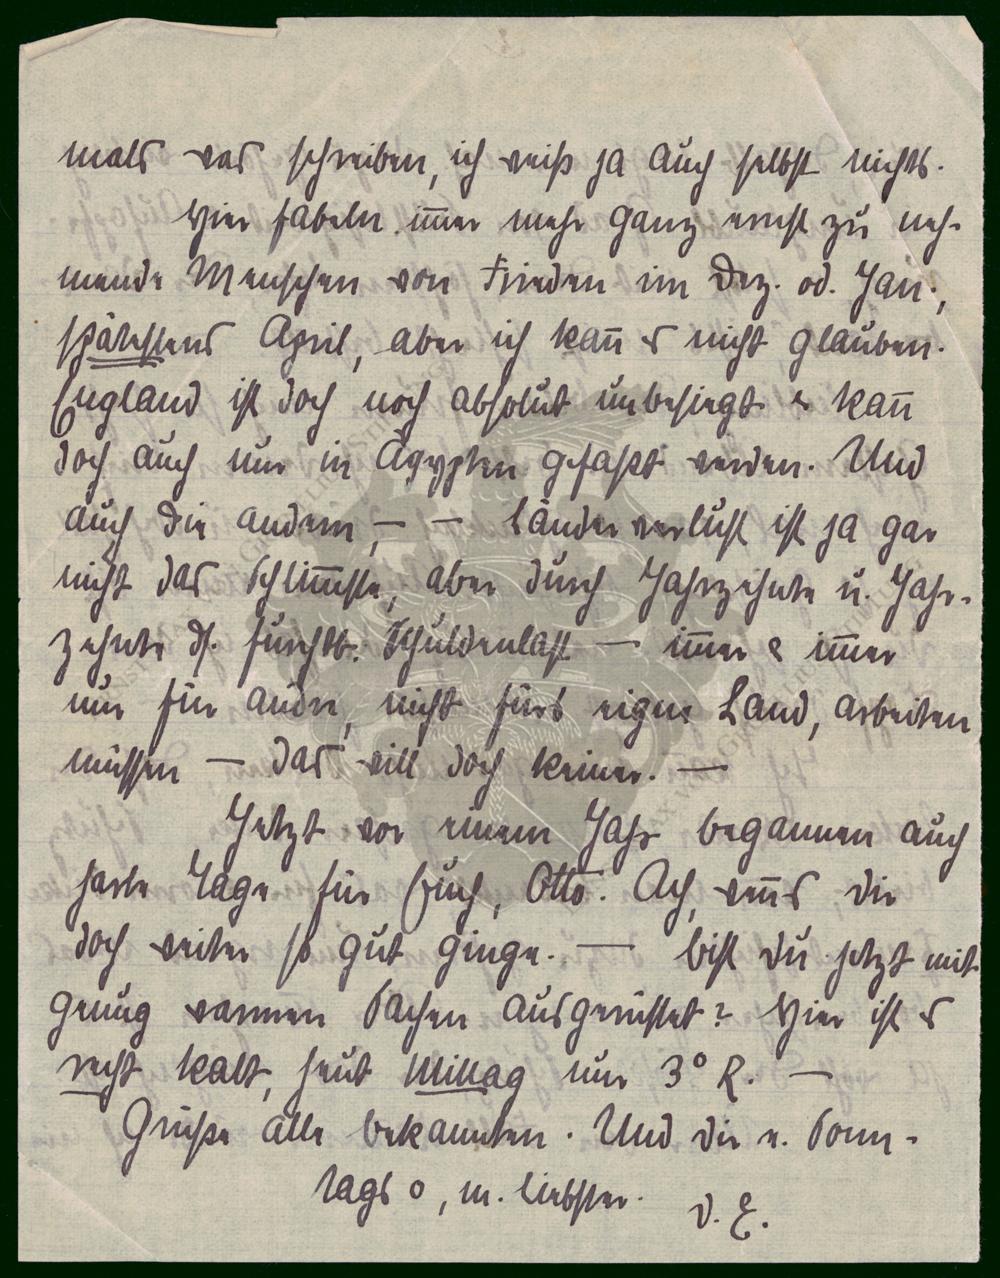 mals was schreiben, ich weiß ja auch selbst nichts.
Hier fabeln im̅er mehr ganz ernst zu neh-
mende Menschen von Frieden im Dez. od. Jan.,
spätestens April, aber ich kan̅ es nicht glauben.
England ist doch noch absolut unbesiegt & kan̅
doch auch nur in Ägypten gefaßt werden. Und
auch die andern, — — Länderverlust ist ja gar
nicht das Schlim̅ste, aber durch Jahrzehnte u. Jahr-
zehnte d. furchtb. Schuldenlast — im̅er & im̅er
nur für andre, nicht fürs eigne Land, arbeiten
müssen — das will doch keiner. —
Jetzt vor einem Jahr begannen auch
harte Tage für Euch, Otto. Ach, wen̅s dir
doch weiter so gut ginge. — bist du jetzt mit
genug warmen Sachen ausgerüstet? Hier ist es
recht kalt, heut Mittag nur 3° R. —
Grüße alle bekannten. Und dir e. Sonn-
tags o, m. liebster. d. E.